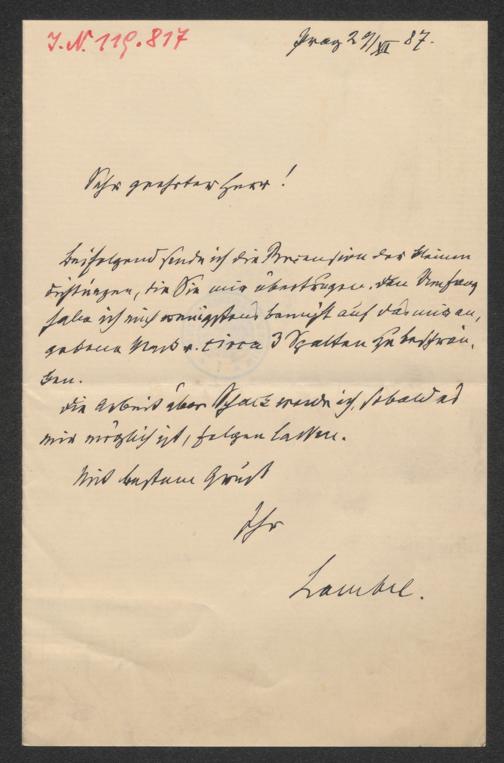 I.N. 119.817
Prag 29/XI 87.
Sehr geehrter Herr!
Beifolgend sende ich die Recension der kleinen
Dichtungen, die Sie mir übertrugen. Den Umfang
habe ich mich wenigstens bemüht auf das mir an,
gebene Maß v. circa 3 Spalten zu beschrän,
ken.
Die Arbeit über Schatz werde ich, sobald es
mir möglich ist, folgen lassen.
Mit bestem Gruß
Ihr
Lambel.